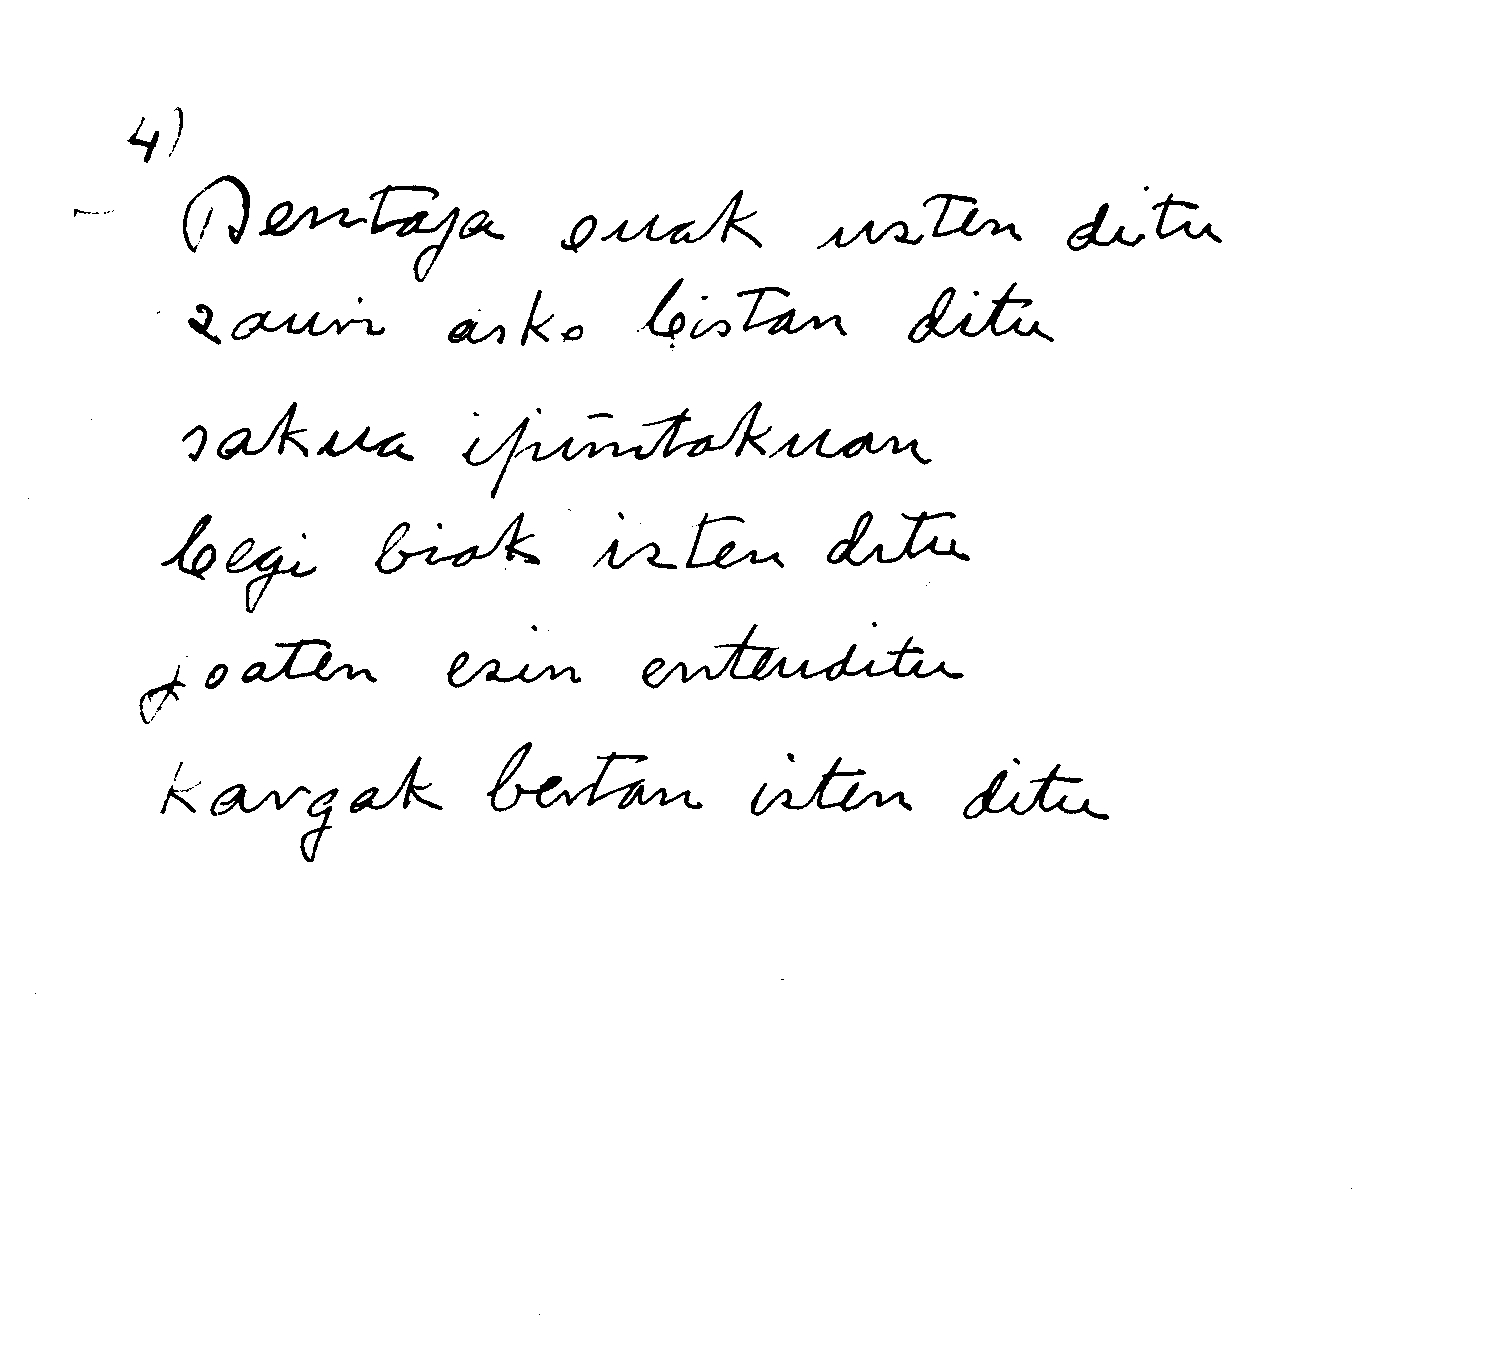 4)
- Bentaja euak usten ditu
zauri asko bistan ditu
sakua ipíntakuan
begi biak isten ditu
joaten esin entenditu
kargak bertan isten ditu